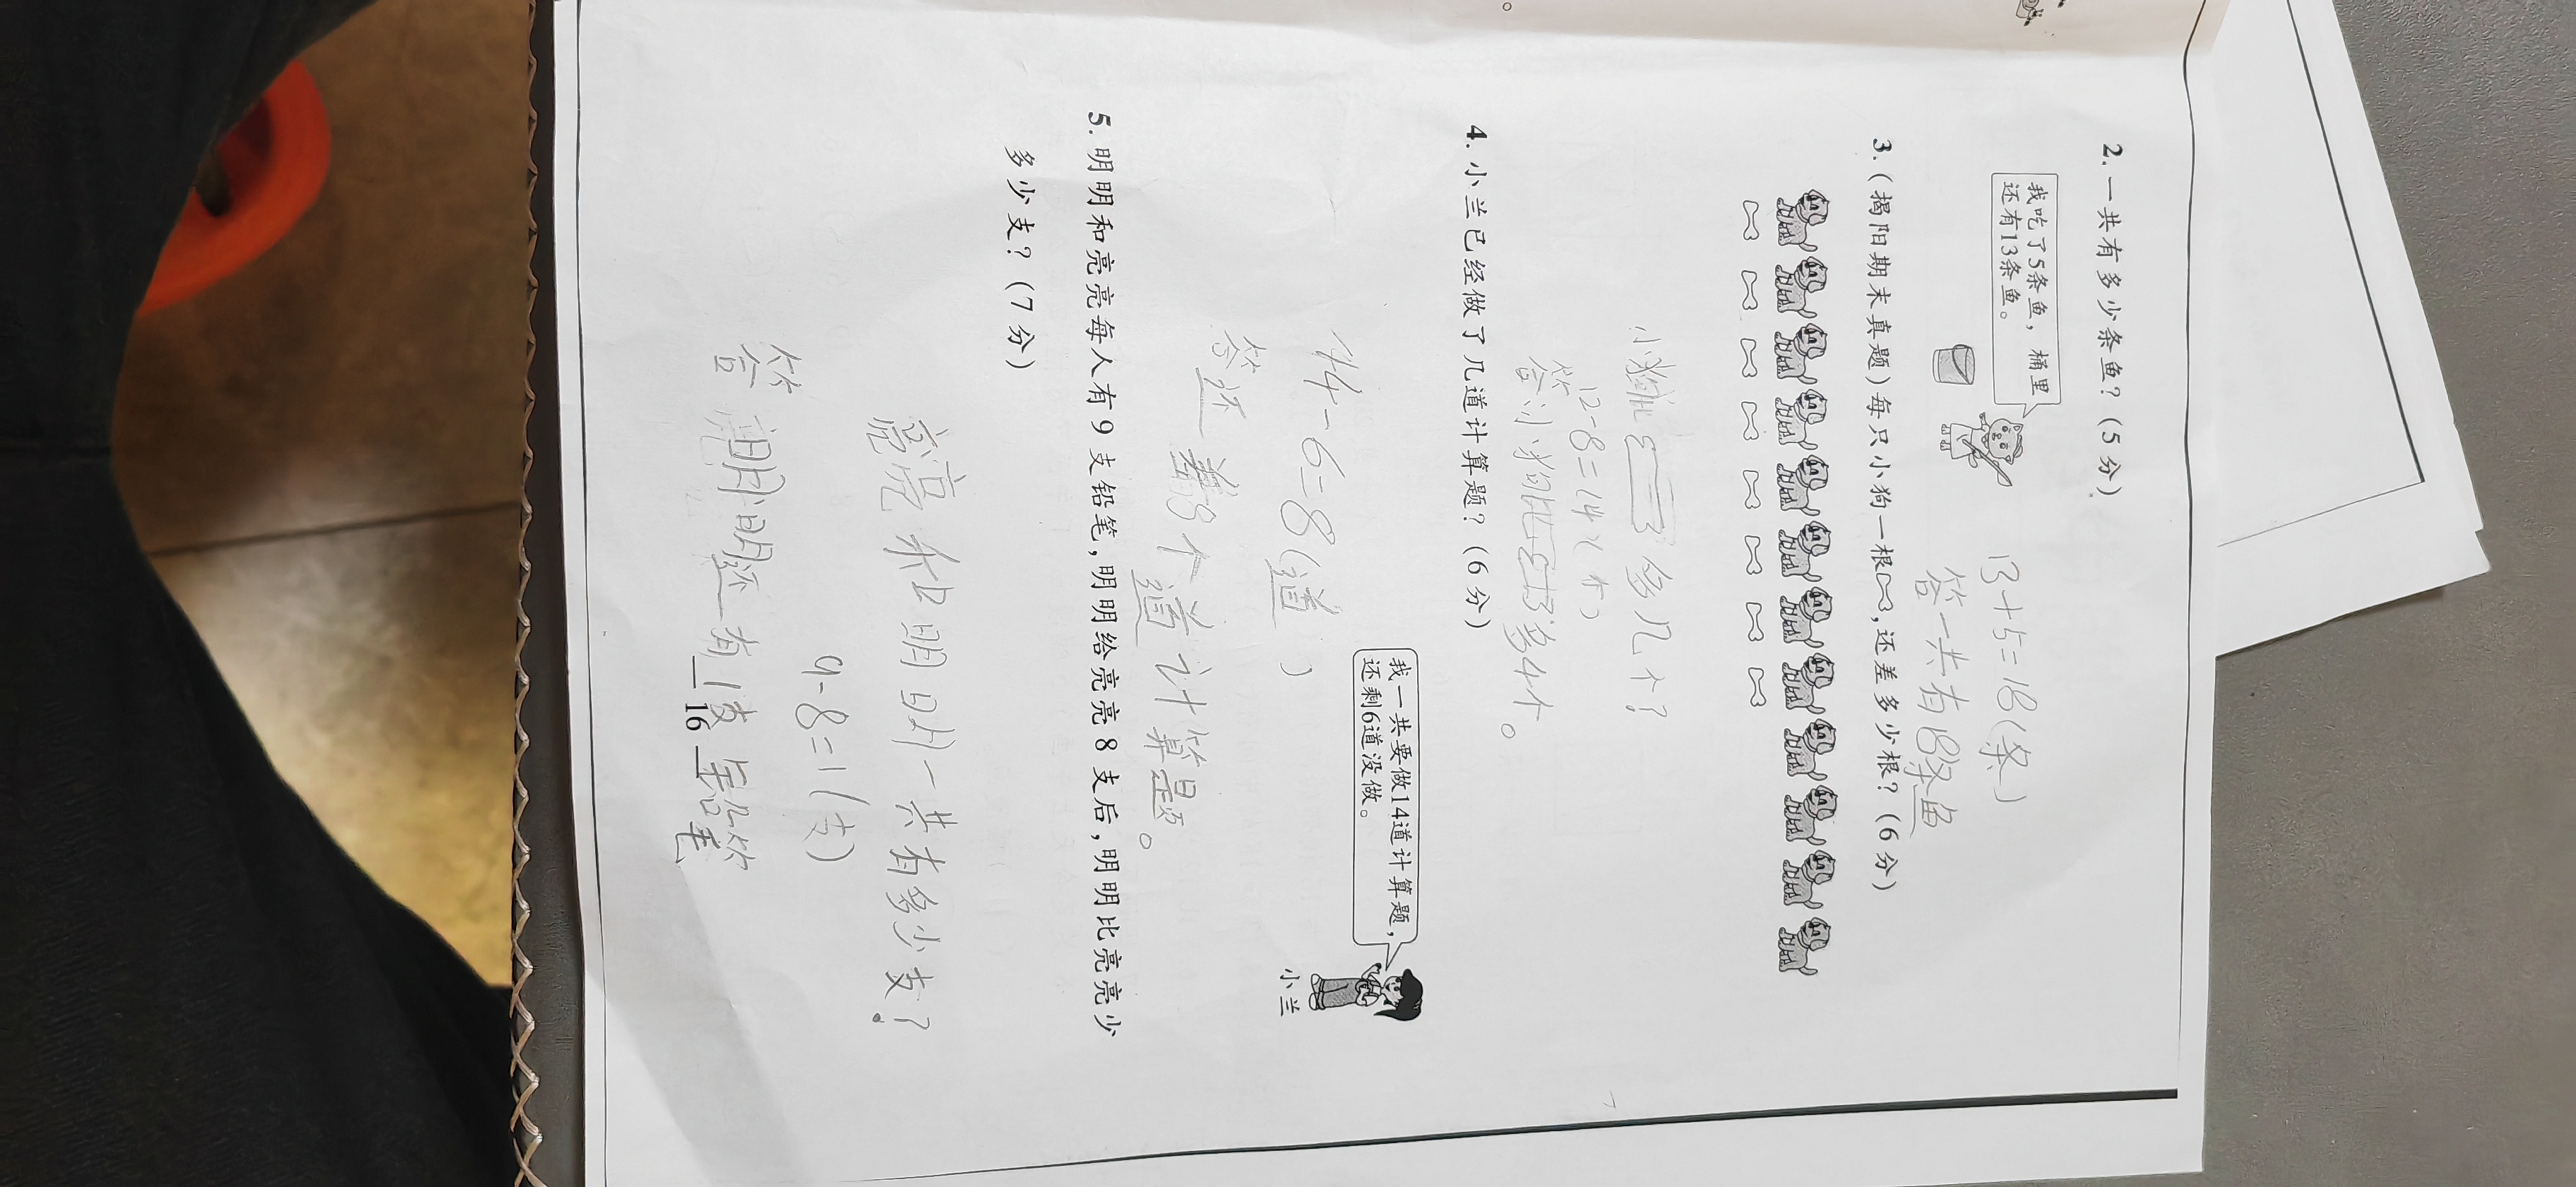 2.一共有多少条鱼？(5分)
我吃了5条鱼，桶里
还有13条鱼。
13+5=18(条)
答一共有18条鱼
3.(揭阳期末真题)每只小狗一根,还差多少根？(6分)
小狗比 多几个？
12-8=14(个)
答小狗比 多4个。
4.小兰已经做了几道计算题？(6分)
我一共要做14道计算题，
还剩6道没做。
小兰
14-6=8(道)
答还 8个道计算题。
5.明明和亮亮每人有9支铅笔，明明给亮亮8支后，明明比亮亮少
多少支？(7分)
亮亮和明明一共有多少支？
9-8=1(支)
答 明明还有1支铅笔
16